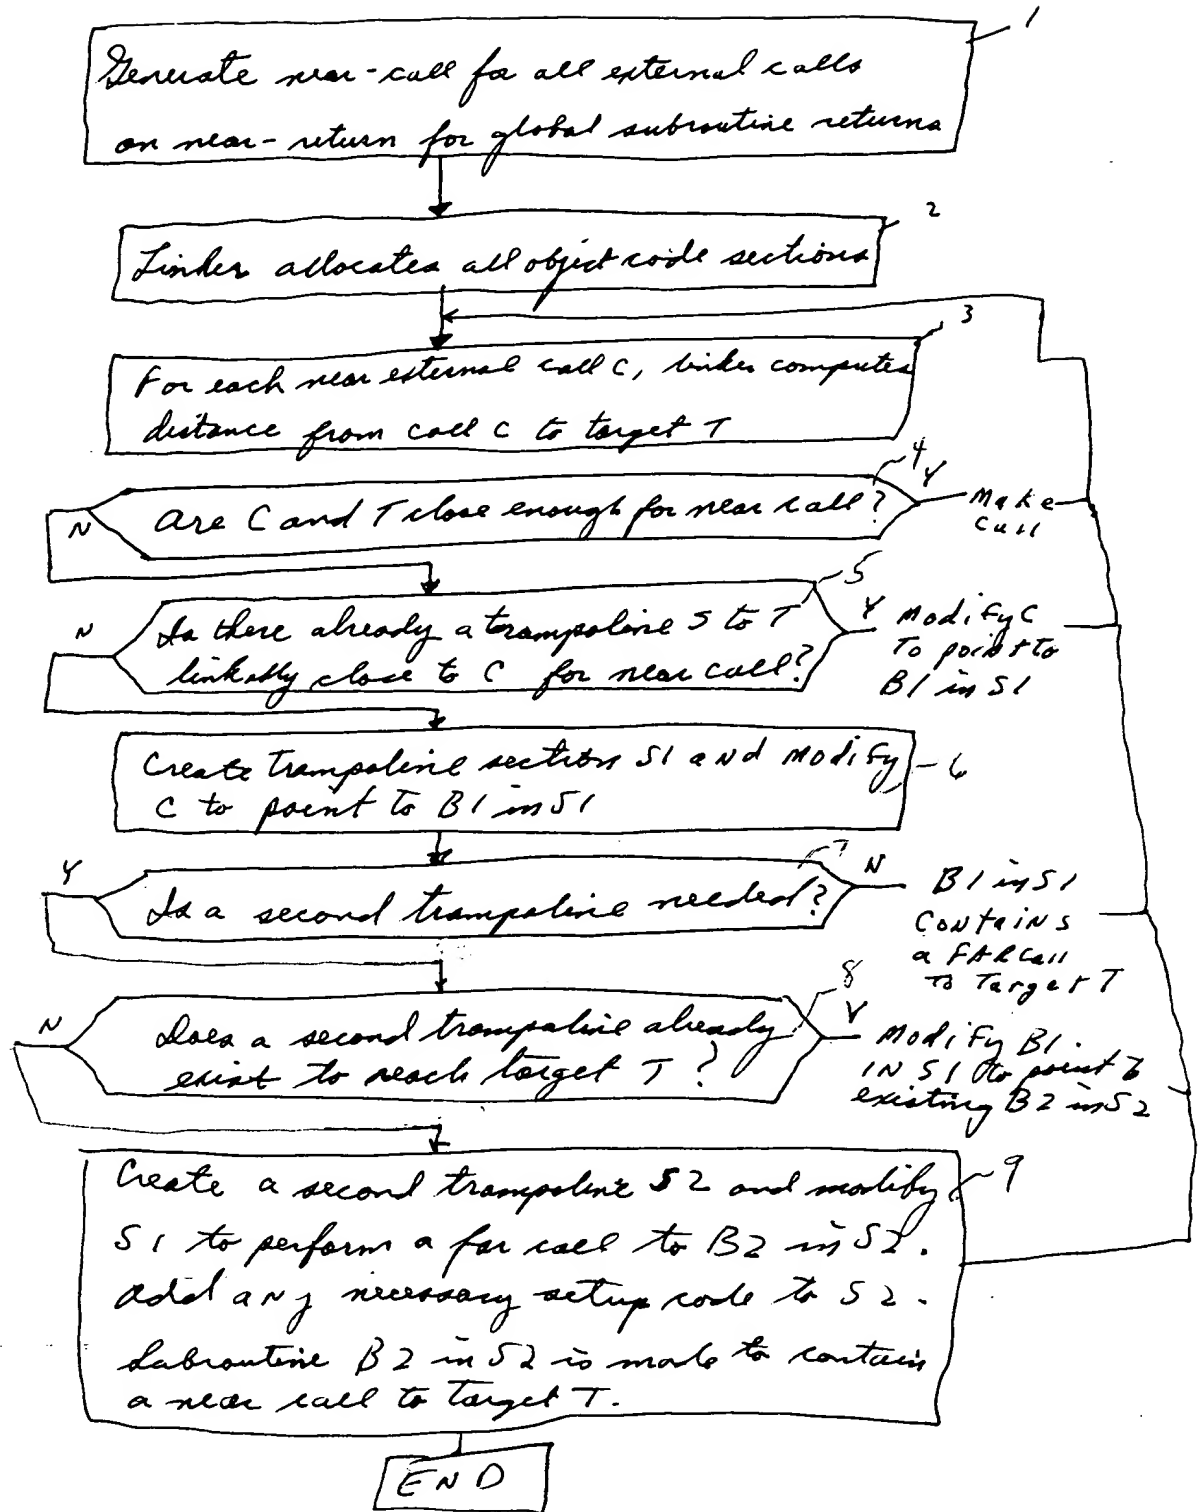 1
Generate near-call for all external calls
on near-return for global subroutine returns
2
Linker allocates all object code sections
3
For each near external call C, linker computes
distance from call C to target T
4
Are C and T close enough for near call?
Y
Make
Call
N
5
Is there already a trampoline S to T
linkably close to C for near call?
Y
Modify C
To point to
B1 in S1
N
Create trampoline section S1 and modify
C to point to B1 in S1
6
7
Is a second trampoline needed?
N
B1 in S1
Contains
a FAR Call
To Target T
Y
8
Does a second trampoline already
exist to reach target T?
Y
Modify B1
IN S1 to point to
existing B2 in S2
N
9
Create a second trampoline S2 and modify
S1 to perform a far call to B2 in S2.
Add any necessary setup code to S2.
Subroutine B2 in S2 is made to contain
a near call to target T.
END